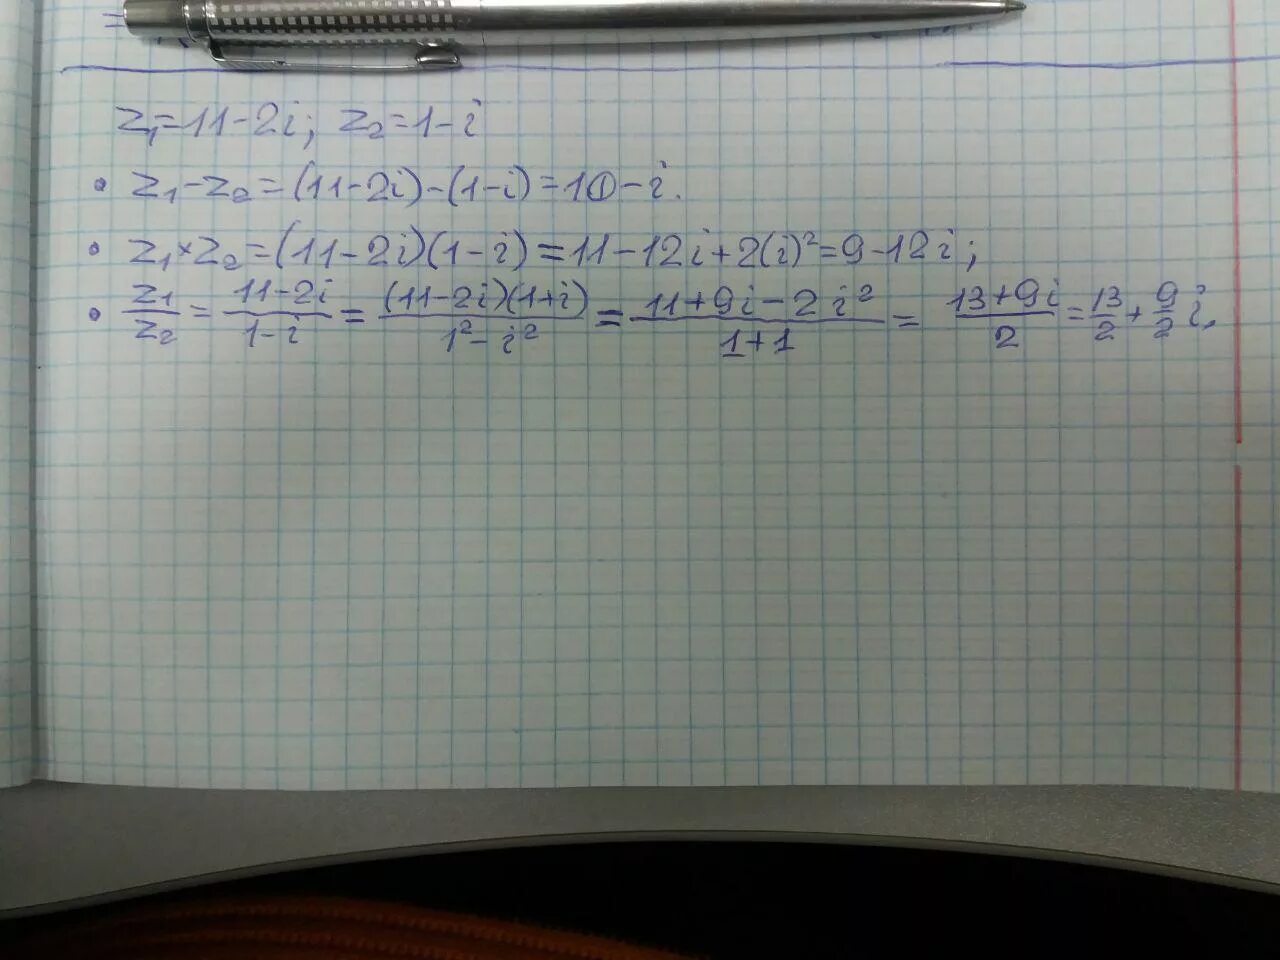 z₁=11-2i; z₂=1-i
• z₁-z₂=(11-2i)-(1-i)=10-i.
• z₁×z₂=(11-2i)(1-i)=11-12i+2(i)²=9-12i;
• z₁/z₂ = (11-2i)/(1-i) = ((11-2i)(1+i))/(1²-i²) = (11+9i-2i²)/(1+1) = (13+9i)/2 = 13/2 + 9/2 i.